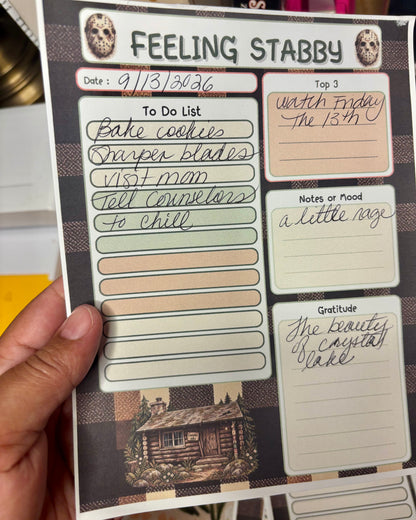 FEELING STABBY
Date : 9/13/2026
To Do List
Bake cookies
Sharpen blades
visit mom
Tell Counselors
to chill
Top 3
Watch Friday
The 13th
Notes or Mood
a little rage
Gratitude
The beauty
of crystal
lake